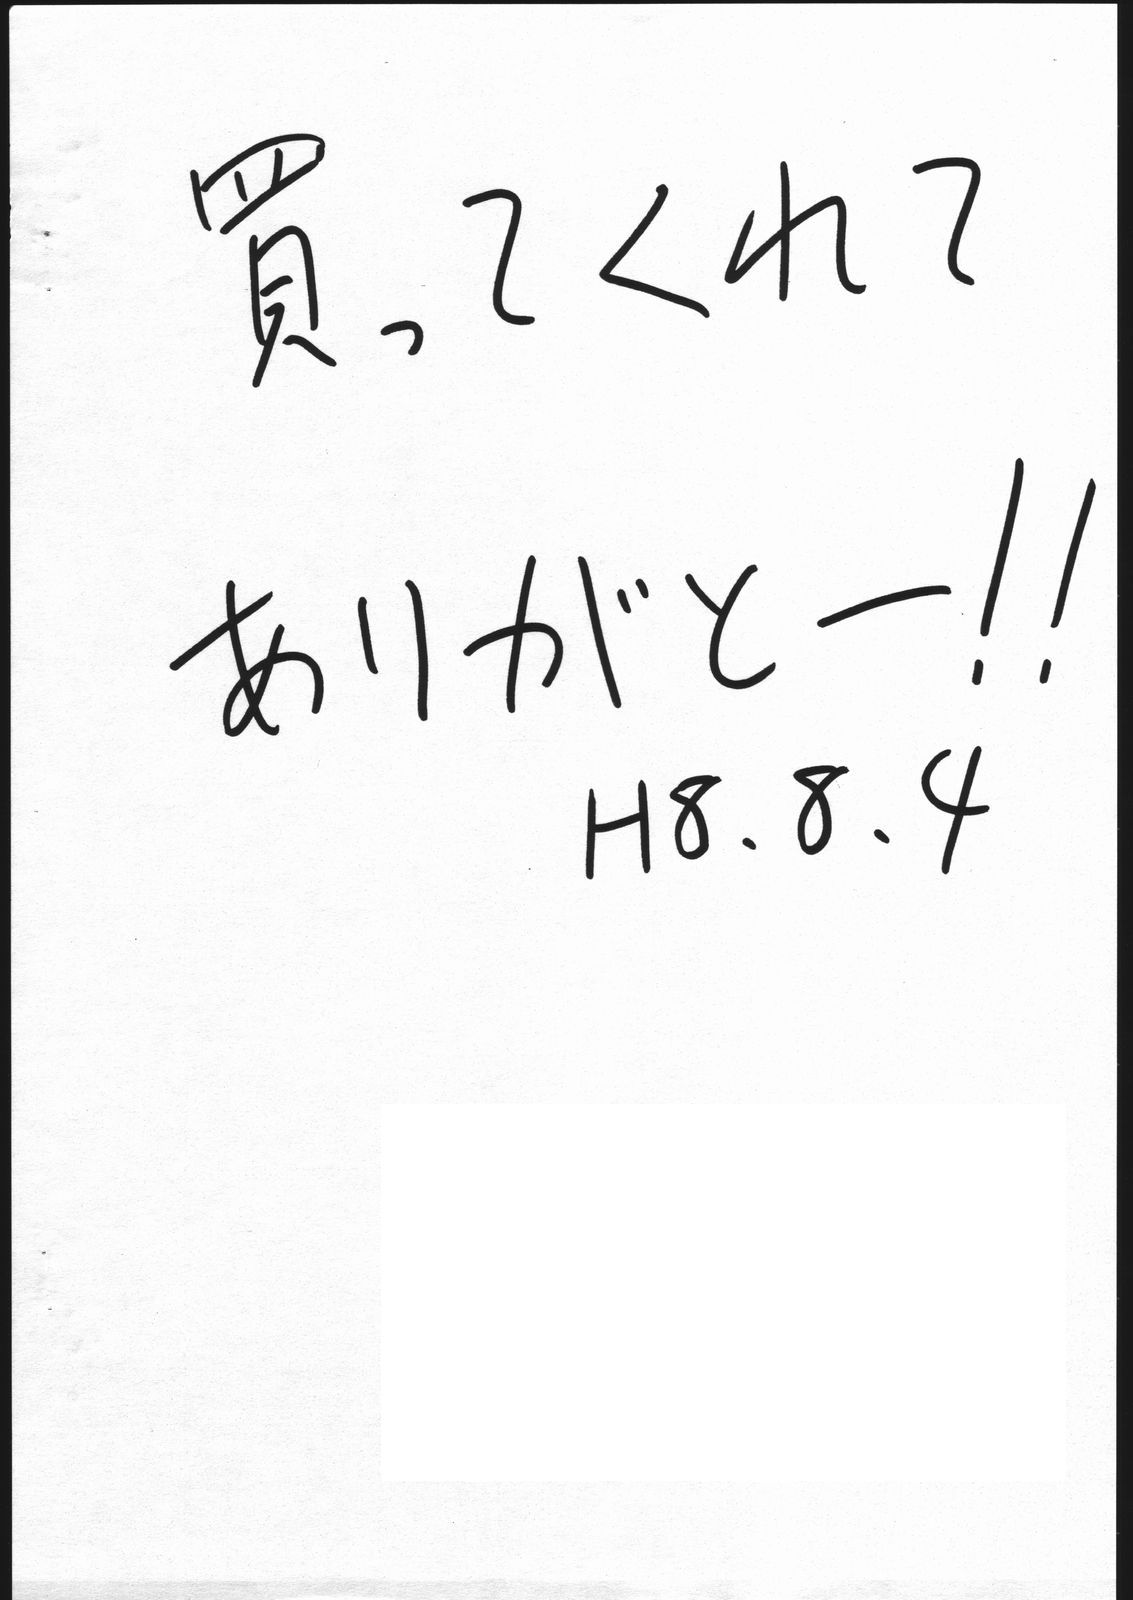 買ってくれて
ありがとー!!
H8.8.4